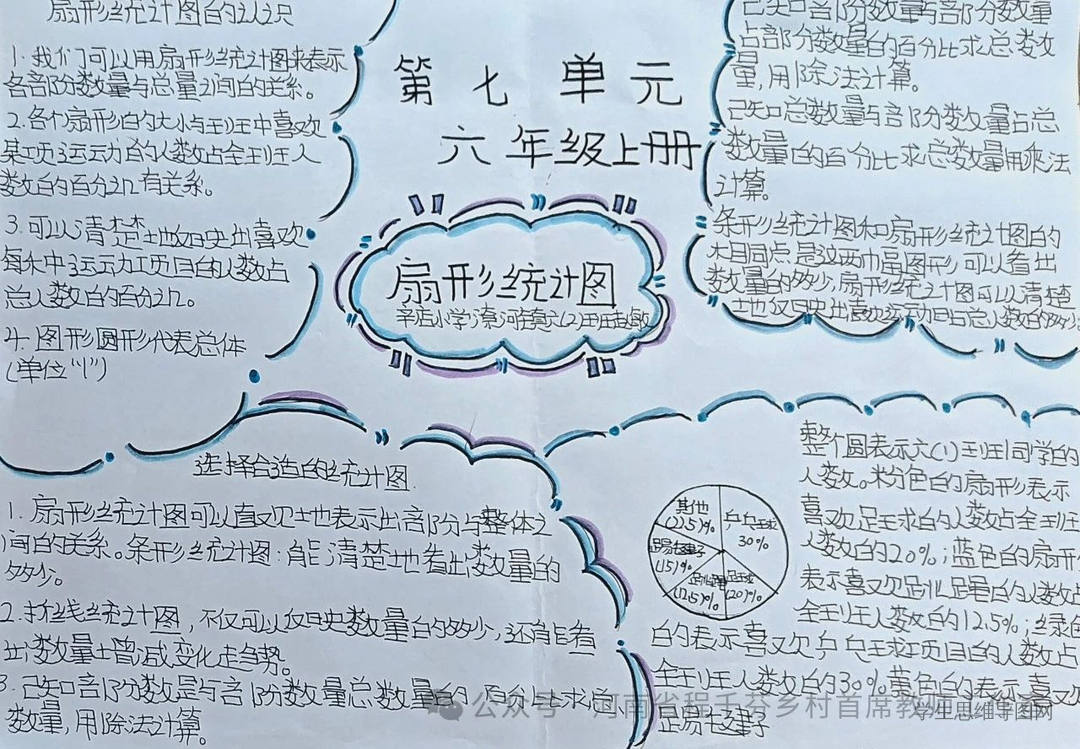 扇形统计图的认识
1. 我们可以用扇形统计图来表示
各部分数量与总量之间的关系。
2. 各个扇形的大小与班中喜欢
某项运动的人数占全班人
数的百分比有关系。
3. 可以清楚地如史出喜欢
每木中运动项目的人数占
总人数的百分比。
4. 图形圆形代表总体
(单位"1")
第七单元
六年级上册
扇形统计图
辛店小学漕河镇六(2)班赵敏
已知部分数量与部分数量
占部分数量的百分比求总数
量,用除法计算。
已知总数量与部分数量占总
数量的百分比求总数量用乘法
计算。
条形统计图和扇形统计图的
相同点是这两幅图形可以看出
数量的多少,扇形统计图可以清楚
选择合适的统计图
1. 扇形统计图可以直观地表示出部分与整体之
间的关系。条形统计图:能清楚地看出数量的
多少。
2. 折线统计图,不仅可以反映数量的多少,还能看
出数量增减变化走趋势。
3. 已知部分数是与部分数量总数量的百分比求总
数量,用除法计算。
其他
(22.5)%
乒乓球
30%
踢毽子
(15)%
足球
(20)%
跳绳
(12.5)%
整个圆表示六(1)班同学的
人数。粉色的扇形表示
喜欢足球的人数占全班
人数的20%;蓝色的扇形
表示喜欢跳绳的人数占
全班人数的12.5%;绿色
的表示喜欢乒乓球项目的人数占
全班人数的30%黄色的表示喜欢
踢毽子
公众号·河南省程千芬乡村首席教师
学生思维导图网